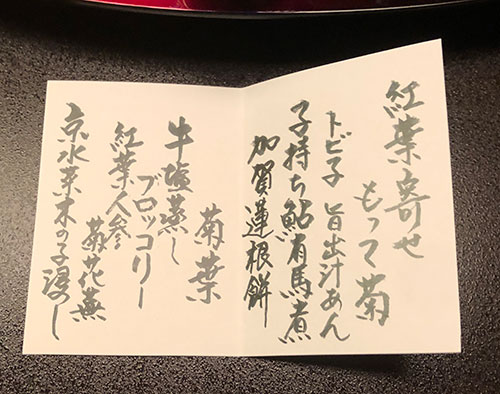 紅葉寄せ
もって菊
トビ子 旨出汁あん
子持ち鮎有馬煮
加賀蓮根餅
菊葉
牛塩蒸し
ブロッコリー
紅葉人参
菊花蕪
京水菜木の子浸し